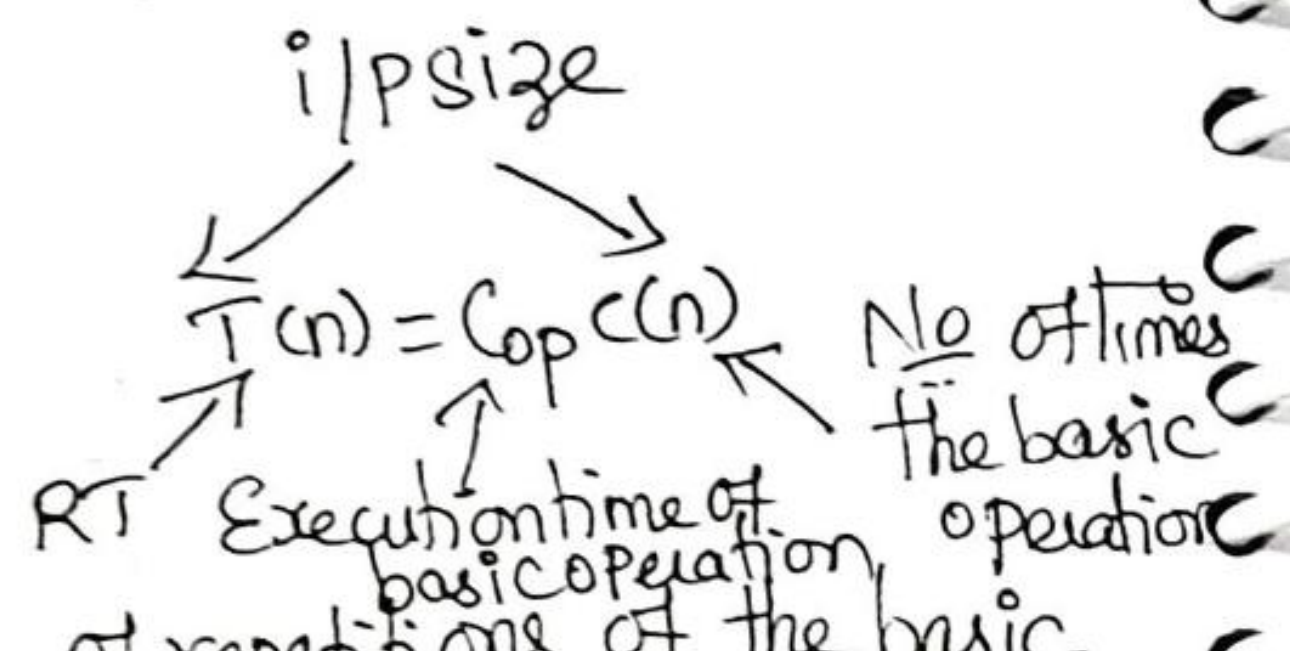 i/p size
T(n) = Cop C(n)
No of times
the basic
operation
RT
Execution time of
basic operation
of repetitions of the basic